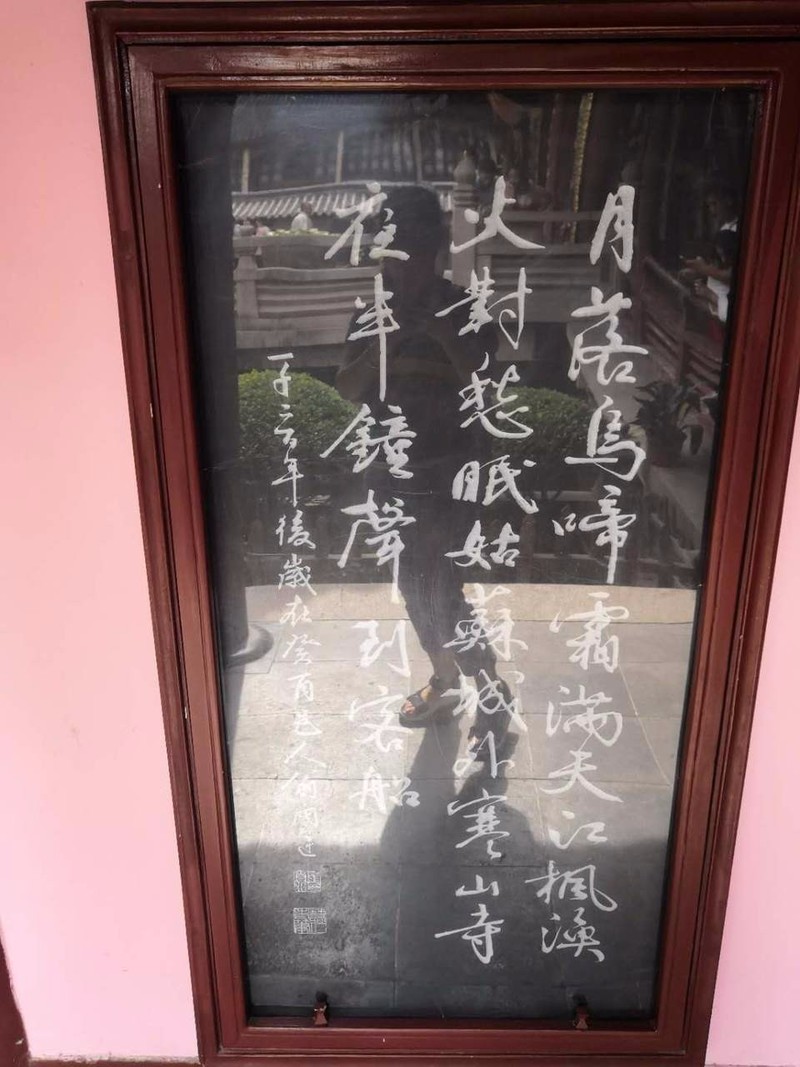 月落烏啼霜滿天江楓漁
火對愁眠姑蘇城外寒山寺
夜半鐘聲到客船
一千二百年後歲在癸酉邑人